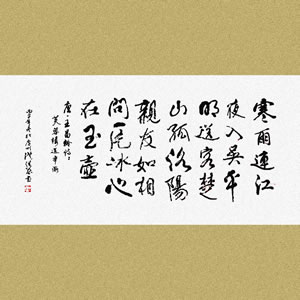 寒雨連江
夜入吳平
明送客楚
山孤洛陽
親友如相
問一片冰心
在玉壺
唐·王昌齡詩
芙蓉樓送辛漸